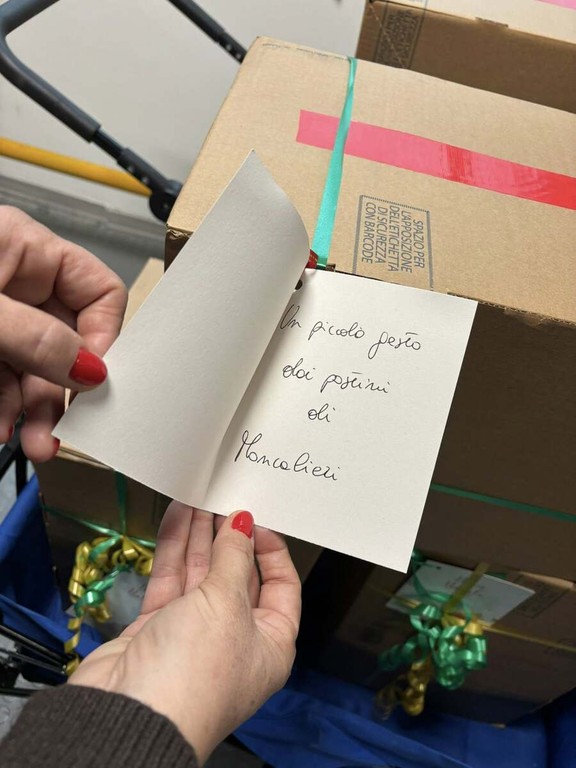 SPAZIO PER
L'APPOSIZIONE
DELL'ETICHETTA
DI SICUREZZA
CON BARCODE
Un piccolo gesto
dai postini
di
Moncalieri